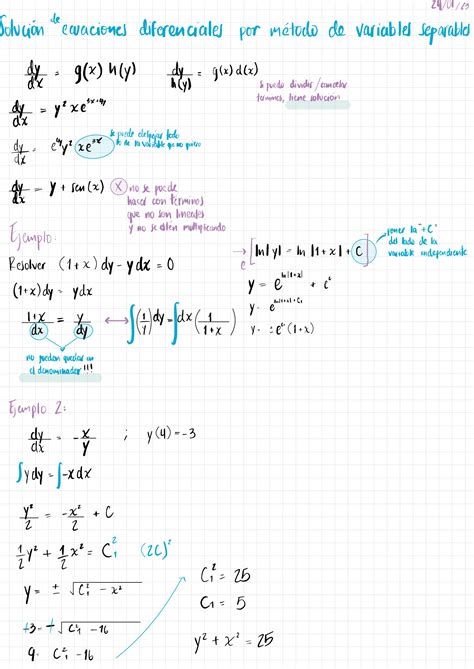 24/01/23
Solución de ecuaciones diferenciales por método de variables separables
dy/dx = g(x) h(y)    dy/h(y) = g(x) d(x)
si puedo dividir/cancelar
terminos, tiene solucion
dy/dx = y² x e^(3x+4y)
dy/dx = e^(4y) y² (x e^(3x)) se puede despejar todo
lo de la variable que no quiero
dy/dx = y + sen(x) (X) no se puede
hacer con terminos
que no son lineales
y no se esten multiplicando
Ejemplo:
Resolver (1+x) dy - y dx = 0
(1+x) dy = y dx
1+x/dx = y/dy ⟷ ∫(1/y) dy = ∫dx (1/1+x)
no pueden quedar en
el denominador !!!
e[ln|y| = ln|1+x| + C] poner la "+C"
del lado de la
variable independiente
y = e^(ln|1+x|) + e^c
y = e^(ln|1+x|+c)
y = ±e^c (1+x)
Ejemplo 2:
dy/dx = -x/y ; y(4) = -3
∫y dy = ∫-x dx
y²/2 = -x²/2 + C
1/2 y² + 1/2 x² = C₁² (2C)²
y = ± √(C₁² - x²)
+3 = +√(C₁² - 16)
9 = C₁² - 16
C₁² = 25
C₁ = 5
y² + x² = 25